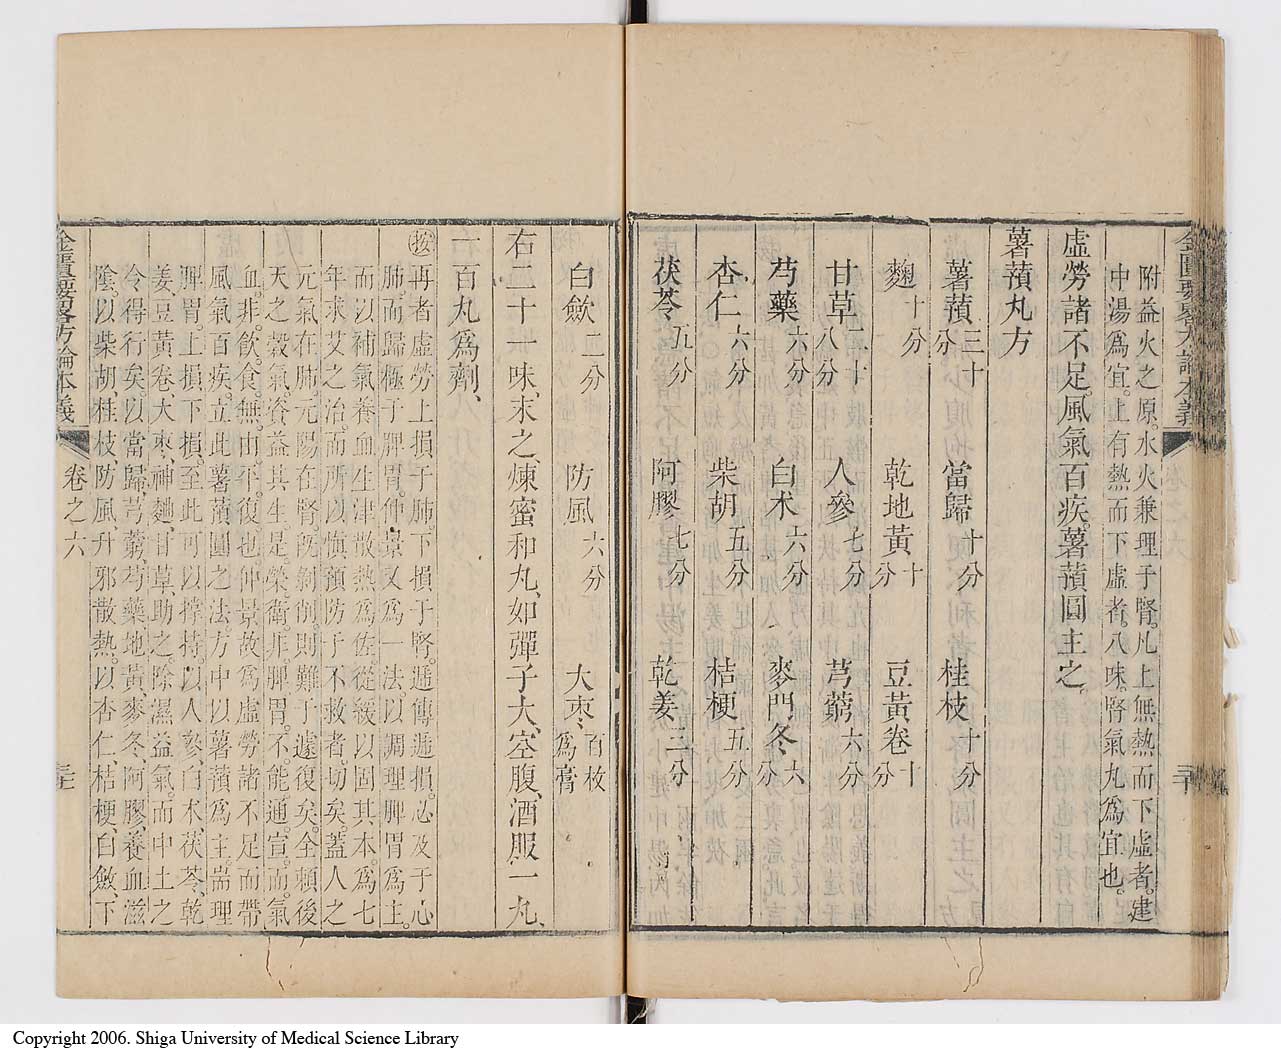 附益火之原水火兼理于腎凡上無熱而下虛者建
中湯爲宜上有熱而下虛者八味腎氣丸爲宜也
虛勞諸不足風氣百疾薯蕷圓主之
薯蕷丸方
薯蕷三十分 當歸十分 桂枝十分
麴十分 乾地黃十分 豆黃卷十分
甘草二十八分 人參七分 芎藭六分
芍藥六分 白朮六分 麥門冬六分
杏仁六分 柴胡五分 桔梗五分
茯苓五分 阿膠七分 乾姜三分
白歛二分 防風六分 大枣百枚爲膏
右二十一味末之煉蜜和丸如彈子大空腹酒服一丸
一百丸爲劑
按再者虛勞上損于肺下損于腎遞傳遞損必及于心
肺而歸極于脾胃仲景又爲一法以調理脾胃爲主
而以補氣養血生津散熱爲佐從緩以固其本爲七
年求艾之治而所以愼預防于不救者切矣蓋人之
元氣在肺元陽在腎既剝削則難于遽復矣全賴後
天之穀氣資益其生是榮衛非脾胃不能通宣而氣
血非飮食無由平復也仲景故爲虛勞諸不足而帶
風氣百疾立此薯蕷圓之法方中以薯蕷爲主耑理
脾胃上損下損至此可以撑持以人參白朮茯苓乾
姜豆黃卷大枣神麯甘草助之除濕益氣而中土之
令得行矣以當歸芎藭芍藥地黃麥冬阿膠養血滋
陰以柴胡桂枝防風升邪散熱以杏仁桔梗白歛下
金匱要略方論本義
卷之六